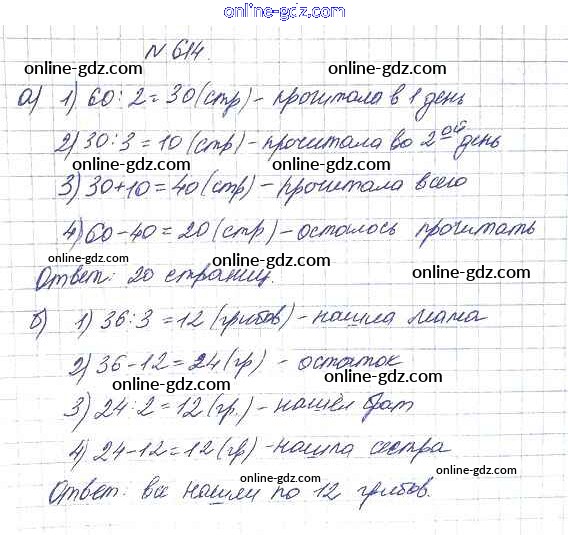 online-gdz.com
N 614.
online-gdz.com online-gdz.com
а) 1) 60 : 2 = 30 (стр) - прочитала в 1 день
2) 30 : 3 = 10 (стр) - прочитала во 2ой день
online-gdz.com online-gdz.com
3) 30 + 10 = 40 (стр) - прочитала всего
online-gdz.com online-gdz.com
4) 60 - 40 = 20 (стр) - осталось прочитать
online-gdz.com online-gdz.com
Ответ: 20 страниц.
б) 1) 36 : 3 = 12 (грибов) - нашла мама
online-gdz.com online-gdz.com
2) 36 - 12 = 24 (гр) - остаток
online-gdz.com online-gdz.com
3) 24 : 2 = 12 (гр.) - нашёл брат
online-gdz.com online-gdz.com
4) 24 - 12 = 12 (гр) - нашла сестра
online-gdz.com online-gdz.com
Ответ: все нашли по 12 грибов.
online-gdz.com